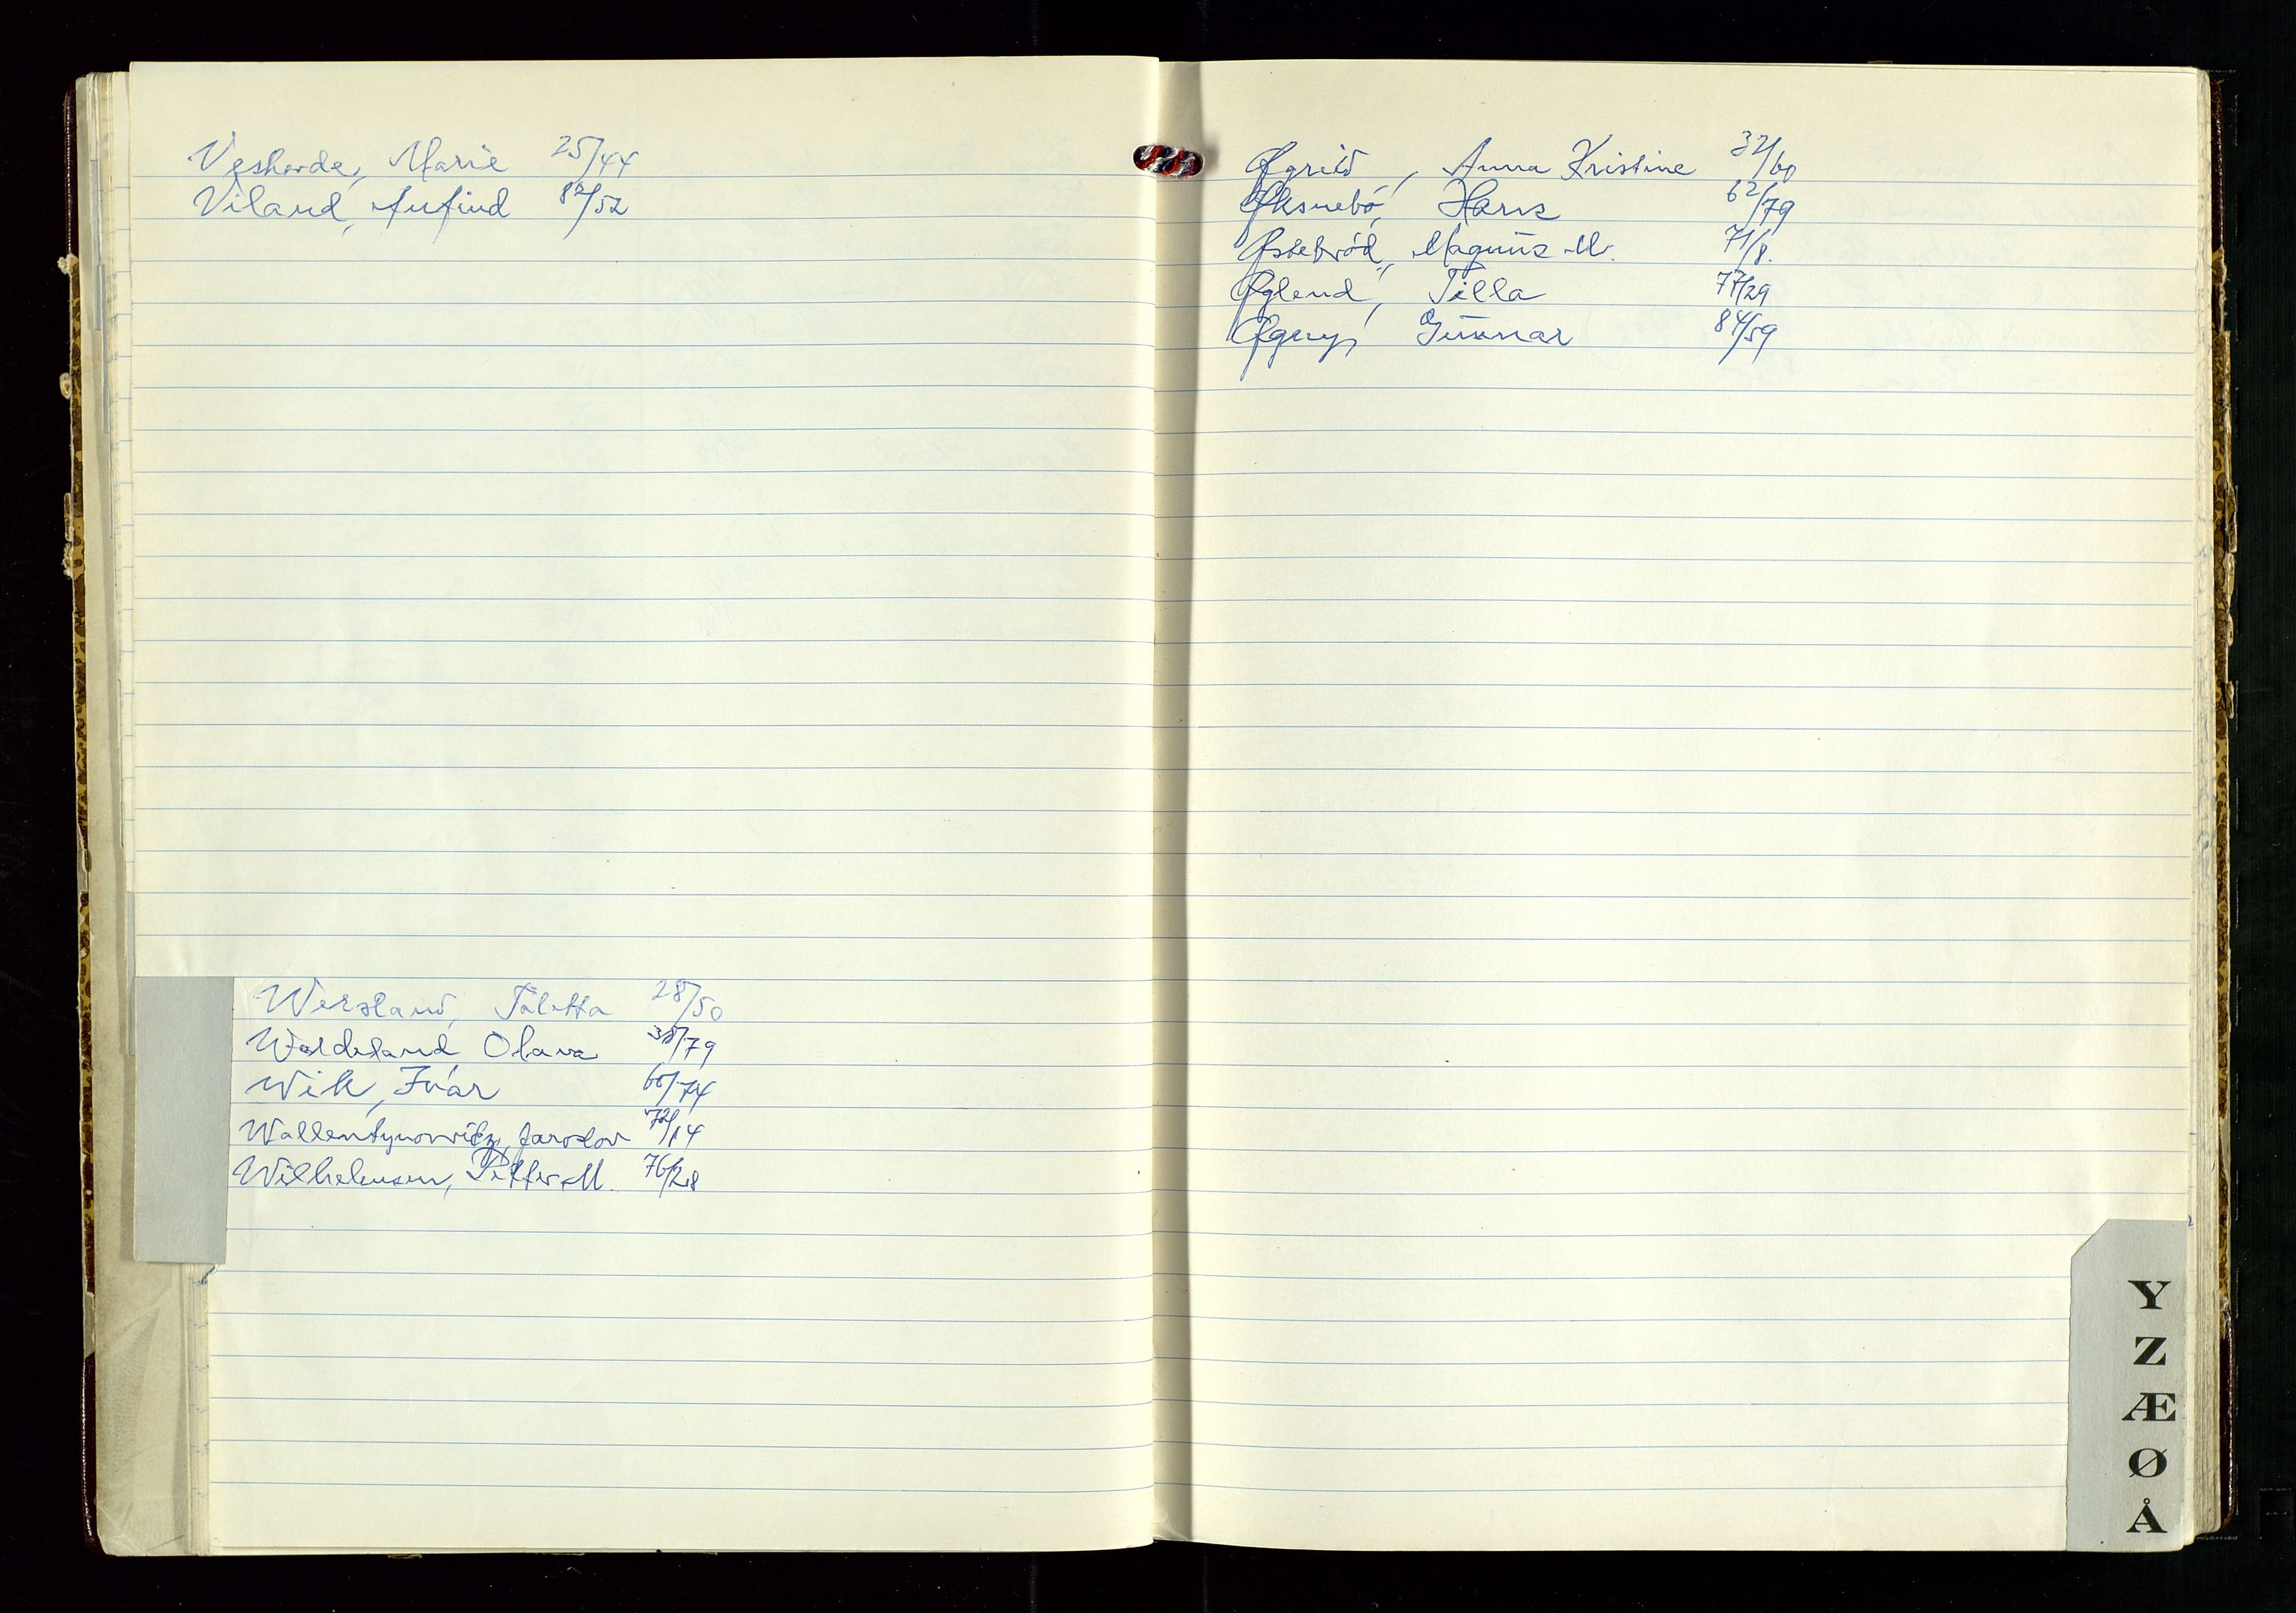 Veshovde, Marie 25/44
Viland, Arfind 82/52
Werstand, Taletta 28/50
Waldeland Olava 38/79
Wik, Ivar 60/74
Wallentynowitz, Jaroslav 72/14
Wilhelmsen, Petter M. 76/28
Øgreid, Anna Kristine 32/60
Øksnebø, Hans 62/79
Østebrød, Magnus M. 71/8.
Øglend, Tilla 77/29
Øgrey, Gunnar 84/59
Y
Z
Æ
Ø
Å